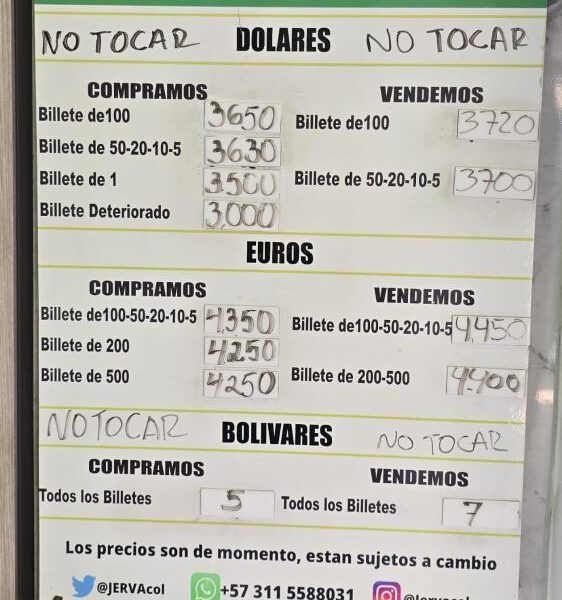 NO TOCAR DOLARES NO TOCAR
COMPRAMOS VENDEMOS
Billete de100 3650 Billete de100 3720
Billete de 50-20-10-5 3630
Billete de 1 3500 Billete de 50-20-10-5 3700
Billete Deteriorado 3.000
EUROS
COMPRAMOS VENDEMOS
Billete de100-50-20-10-5 4.350 Billete de100-50-20-10-5 4.450
Billete de 200 4250
Billete de 500 4250 Billete de 200-500 4.400
NO TOCAR BOLIVARES NO TOCAR
COMPRAMOS VENDEMOS
Todos los Billetes 5 Todos los Billetes 7
Los precios son de momento, estan sujetos a cambio
@JERVAcol +57 311 5588031 @Jervacol